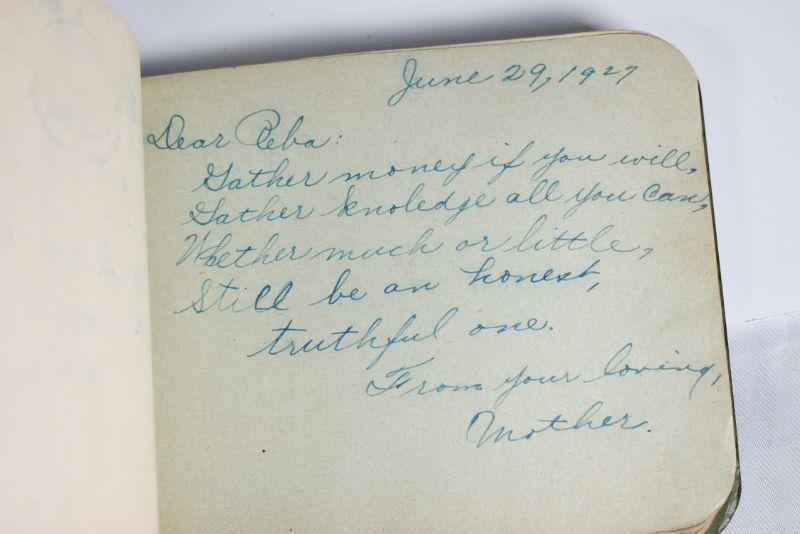 June 29, 1927
Dear Reba:
Gather money if you will,
Gather knoledge all you can,
Whether much or little,
Still be an honest,
truthful one.
From your loving,
Mother.